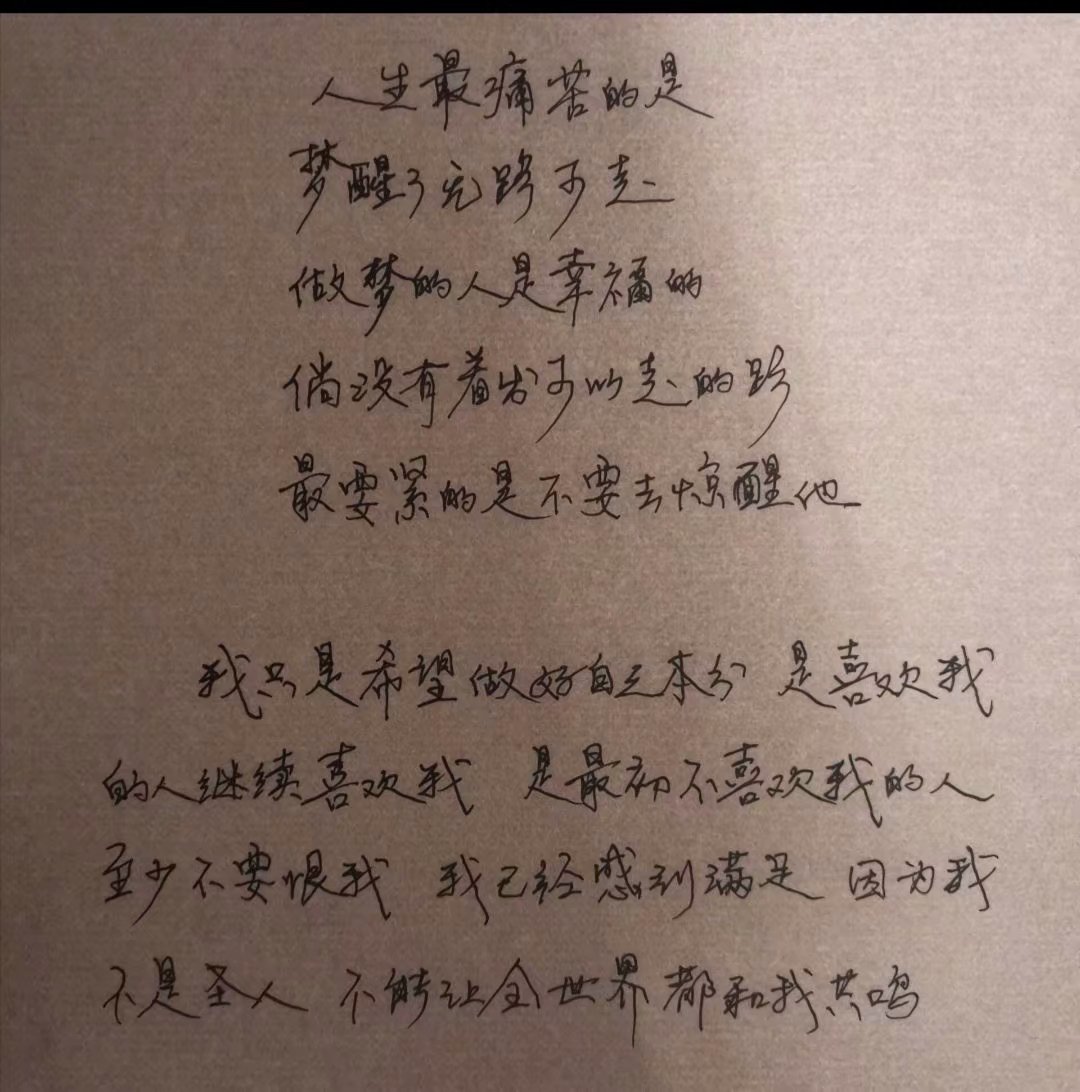 人生最痛苦的是
梦醒了无路可走
做梦的人是幸福的
倘没有看出可以走的路
最要紧的是不要去惊醒他
我只是希望做好自己本分 是喜欢我
的人继续喜欢我 是最初不喜欢我的人
至少不要恨我 我已经感到满足 因为我
不是圣人 不能让全世界都和我共鸣